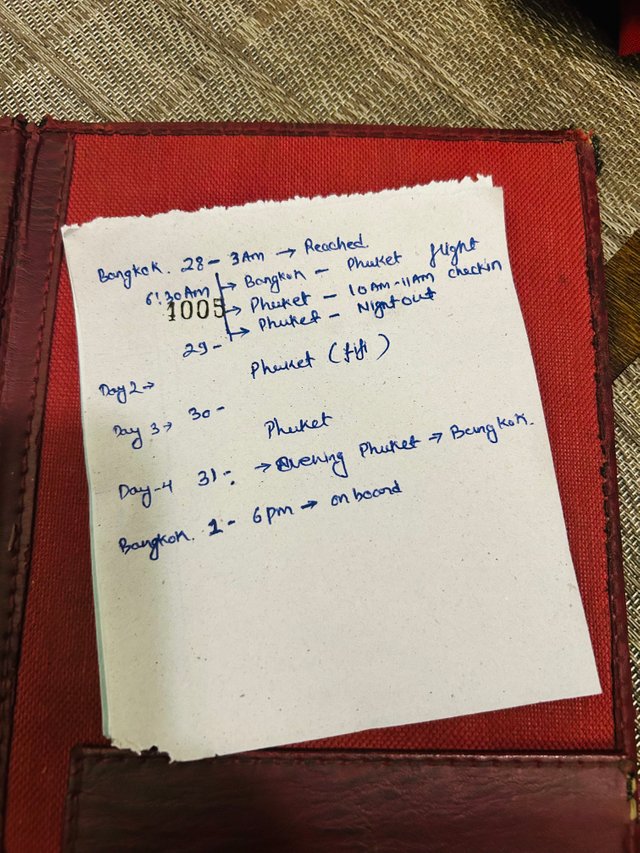 Bangkok. 28 - 3AM → Reached
6:30AM → Bangkok - Phuket flight
1005 → Phuket - 10AM-11AM checkin
→ Phuket - Night out
Day 2 → 29 - Phuket (fifi)
Day 3 → 30 - Phuket
Day-4 31 - → Evening Phuket → Bangkok.
Bangkok. 1 - 6pm → onboard